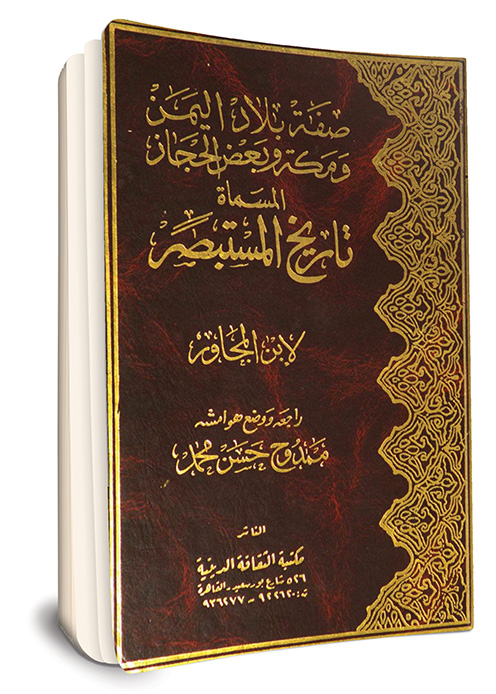 صفة بلاد اليمن
ومكة وبعض الحجاز
المسماة
تاريخ المستبصر
لابن المجاور
راجعه ووضع هوامشه
ممدوح حسن محمد
الناشر
مكتبة الثقافة الدينية
٥٢٦ شارع بورسعيد - القاهرة
ت: ٩٢٢٦٢٠ - ٩٣٦٢٧٧